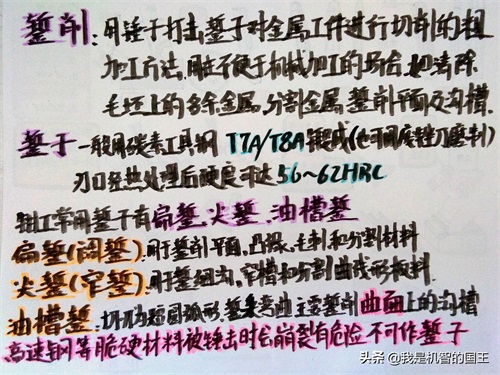 錾削:用锤子打击錾子对金属工件进行切削的粗
加工方法,用在不便于机械加工的场合,如清除
毛坯上的多余金属,分割金属,錾削平面及沟槽.
錾子一般用碳素工具钢 T7A/T8A锻成(也可用废锉刀磨制)
刃口经热处理后硬度可达56~62HRC
钳工常用錾子有扁錾.尖錾.油槽錾
扁錾(阔錾).用于錾削平面,凸缘、毛刺和分割材料
尖錾(窄錾).用于錾细沟,窄槽和分割曲线形板料.
油槽錾.切刃为短圆弧形,錾身弯曲主要錾削曲面上的沟槽
高速钢等脆硬材料被锤击时会崩裂有危险 不可作錾子
头条 @我是机智的国王